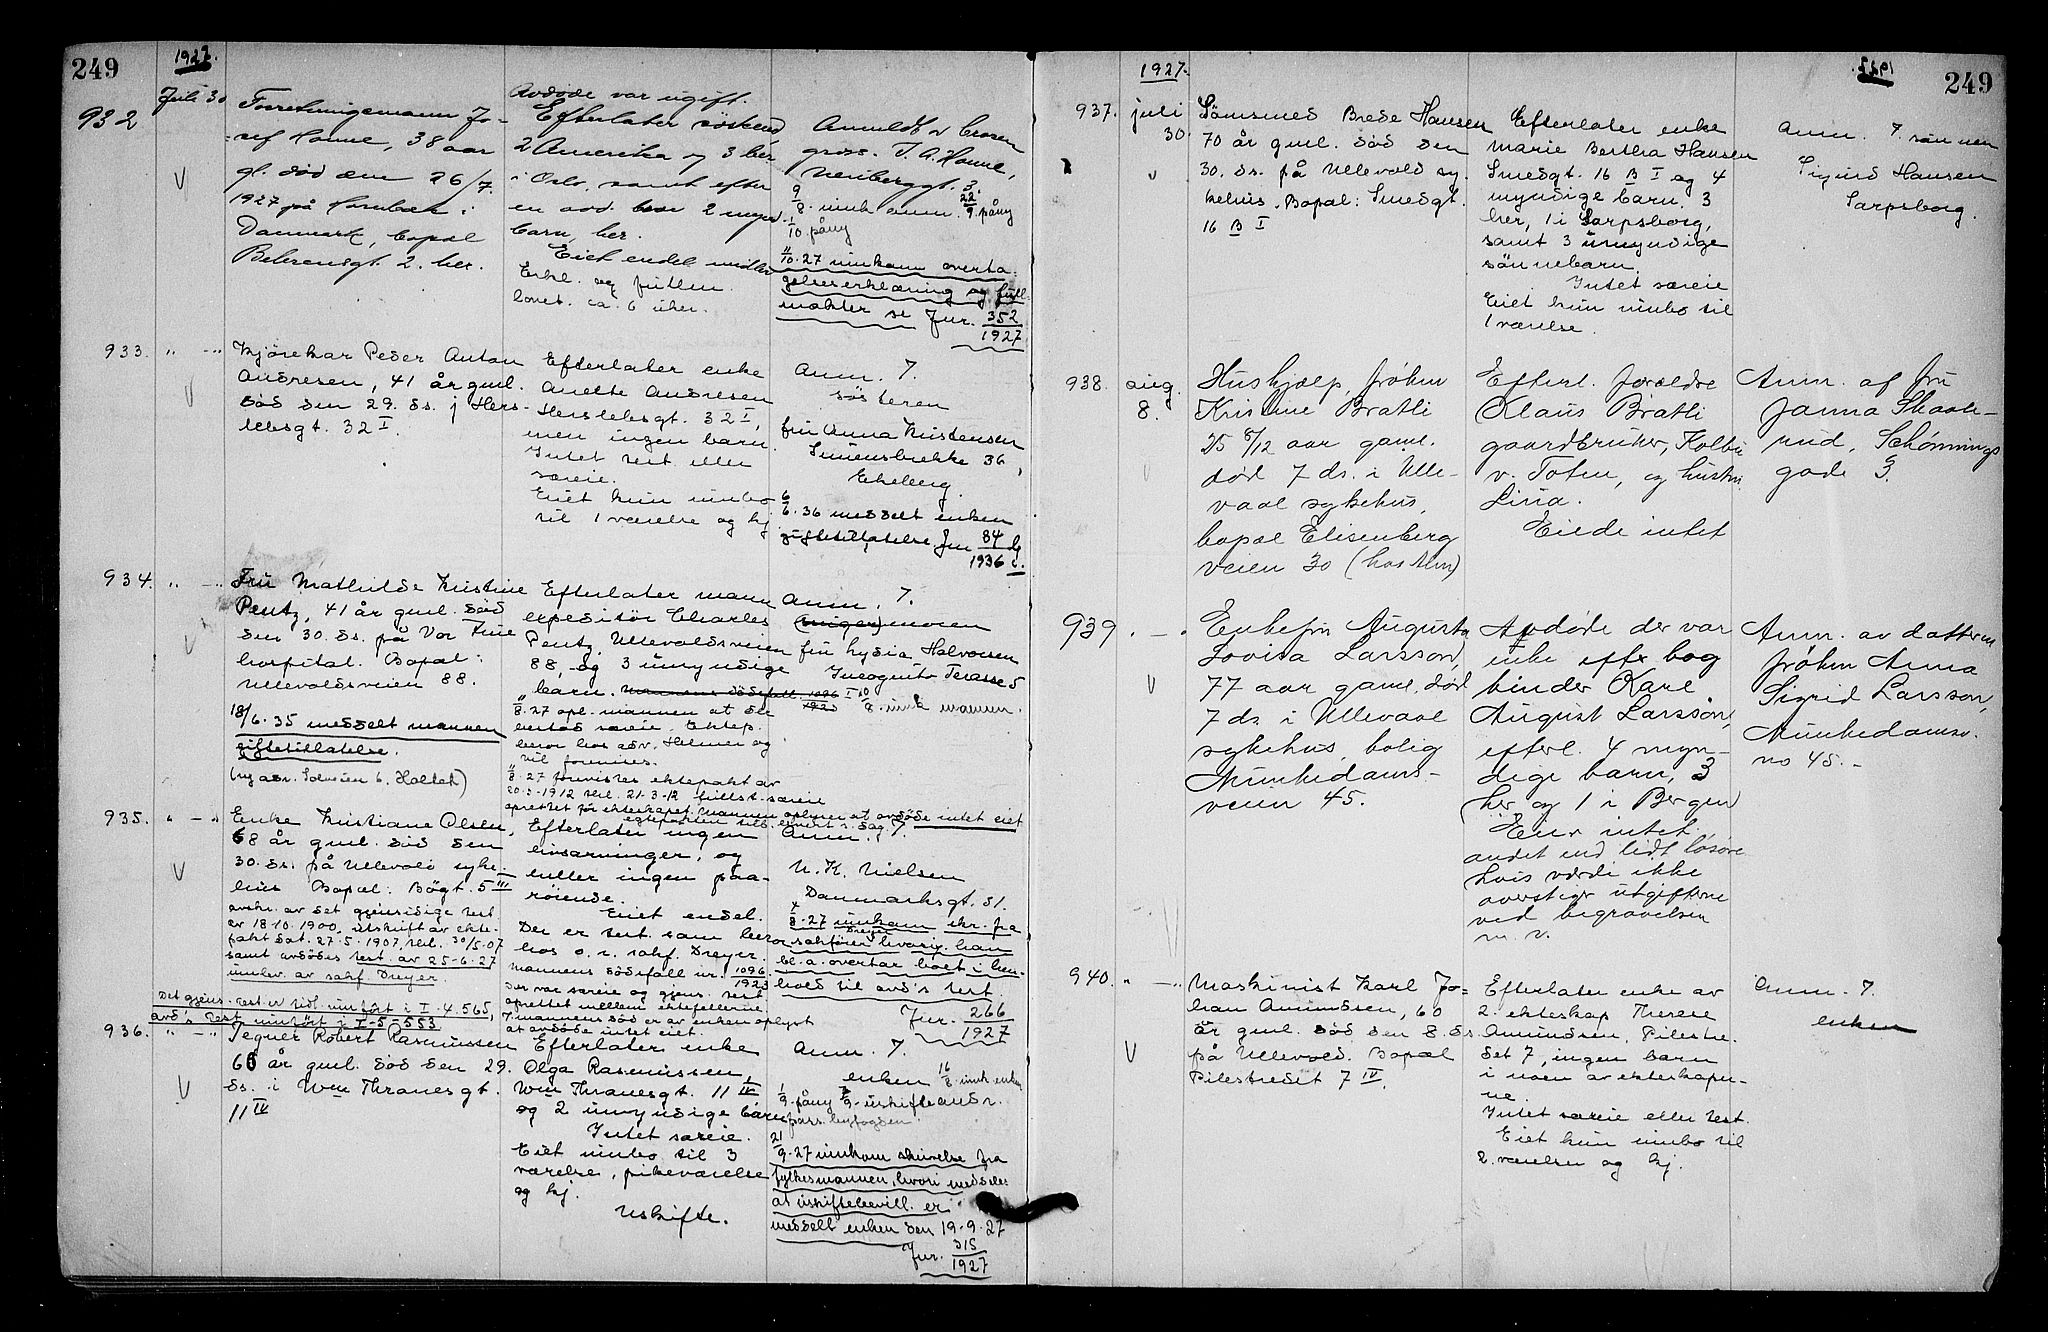 249
1927.
932
Juli 30
Forretningsmann Jo-
sef Honne, 38 aar
gl. død den 26/7.
1927 på Hornbæk i
Danmark, bopæl
Behrensgt. 2. her.
Avdøde var ugift.
Efterlater søskend
2 Amerika og 3 her
i Oslo, samt efter
en avd. bror 2 umynd.
barn, her.
Eiet endel midler
Enkl. og
lovet. ca. 6 uker.
Anmeldt v broren
gross. J. A. Honne,
Neuberggt. 3.
9/8. innk anm. 22/9. påny
1/10 påny
11/10.27 innkom overta-
gelseserklæring og full-
makter se Jnr. 352/1927
933. " -"-
Kjørekar Peder Anton
Andresen, 41 år gml.
død den 29. ds. i Hers-
lebsgt. 32 I.
Efterlater enke
Anette Andresen
Herslebsgt. 32 I,
men ingen barn
Intet test. eller
særeie.
Eiet kun innbo
til 1 værelse og kj
Anm. 7.
søsteren
fru Anna Kristensen
Simensbrekke 36,
Ekeberg.
6/6. 36 meddelt enken
giftetillatelse Jnr 84/1936
934. " -"-
Fru Mathilde Kristine
Pentz, 41 år gml. død
den 30. ds. på Vor Frue
hospital. Bopæl:
Ullevoldsveien 88.
18/6. 35 meddelt mannen
giftetillatelse.
Efterlater mann
expeditør Charles
Pentz, Ullevoldsveien
88, og 3 umyndige
barn. Mannens dödsfall 1096/1923
11/8.27 opl. mannen at det
bestod særeie. Ektep.
beror hos adv. Helmer og
vil forevises.
11/8.27 forevistes ektepakt av
20-3-1912 tkl. 21-3-12 fullst. særeie
oprettet før ekteskapet. Mannen oplyser at avdøde intet eiet
Anm. 7.
(svigermoren)
fru Lydia Halvorsen
Incognito Terasse 5
I 10/8. innk mannen.
935. " -"-
Enke Kristiane Olsen,
68 år gml. død den
30. ds. på Ullevold syke-
hus Bopæl: Bögt. 5 III
avskr. av det gjensidige test.
av 18-10-1900, utskrift av ekte-
pakt dat. 27-5-1907, tkl. 30/5-07
samt avdødes test. av 25-6-27
innlev. av sakf. Dreyer
Det gjens. test er tidl. innført i I-4-565,
avd's test innført i I-5-553
Efterlater ingen
livsarvinger, og
heller ingen paa-
rørende.
Eiet endel.
Der er test. som beror
hos o.r. sakf. Dreyer.
Mannens dödsfall nr. 1096/1923
Der var særeie og gjens. test
oprettet mellem ektefellerne.
I mannens död er av enken oplyst
at avdøde intet eiet.
Anm. 7.
N. K. Nielsen
Danmarksgt. 31.
4/8.27 innkom skr. fra
sakfører Dreyer hvorig. han
bl. a. overtar boet i hen-
hold til avd's test.
Jnr. 266/1927
936. " -"-
Tegner Robert Rasmussen
66 år gml. død den 29.
ds. i Wm Thranesgt.
11 IV
Efterlater enke
Olga Rasmussen,
Wm Thranesgt. 11 IV
og 2 umyndige barn
Intet særeie.
Eiet innbo til 3
værelse, pikeværelse
og kj.
Uskifte.
Anm. 7.
enken 16/8. innk enken
1/9. påny 3/9. uskifteandr.
pass. byfogden.
21/9.27 innkom skrivelse fra
fylkesmannen, hvori meddeles
at uskiftebevill. er
meddelt enken den 19-9-27
Jnr. 315/1927
249
1927.
1927.
937. juli
30.
Sömsmed Brede Hansen
70 år gml. død den
30. ds. på Ullevold sy-
kehus. Bopæl: Smedgt.
16 B I
Efterlater enke
Marie Bertha Hansen
Smedgt. 16 B I og 4
myndige barn, 3
her, 1 i Sarpsborg,
samt 3 umyndige
sönnebarn.
Intet særeie
Eiet kun innbo til
1 værelse.
Anm. 7. sønnen
Sigurd Hansen
Sarpsborg.
938. aug.
8.
Hushjælp, frøken
Kristine Bratli
25 5/12 aar gaml.
død 7 ds. i Ulle-
vaal sykehus,
bopæl Elisenberg
veien 30 (hos Alm)
Efterl. forældre
Klaus Bratli
gaardbruker, Kolbu
v. Toten, og hustru
Lina.
Eiede intet
Anm. af fru
Janna Skaale-
rud, Schønnings
gade 3.
939. -"-
Enkefru Augusta
Lovisa Larsson,
77 aar gaml. død
7 ds. i Ullevaal
sykehus, bolig
Munkedams-
veien 45.
Avdøde der var
enke efter bog
binder Karl
August Larsson,
efterl. 4 myn-
dige barn, 3
her og 1 i Bergen
Eier intet
andet end lidt løsøre
hvis værdi ikke
overstiger utgifterne
ved begravelsen
m. v.
Anm. av datteren
frøken Anna
Sigrid Larsson,
Munkedamsv.
no 45.-
940. " -"-
Maskinist Karl Jo-
han Amundsen, 60
år gml. død den 8. ds
på Ullevold. Bopæl
Pilestredet 7 IV.
Efterlater enke av
2. ekteskap Therese
Amundsen, Pilestre-
det 7, ingen barn
i noen av ekteskape-
ne.
Intet særeie eller test.
Eiet kun innbo til
2. værelser og kj.
Anm. 7.
enken